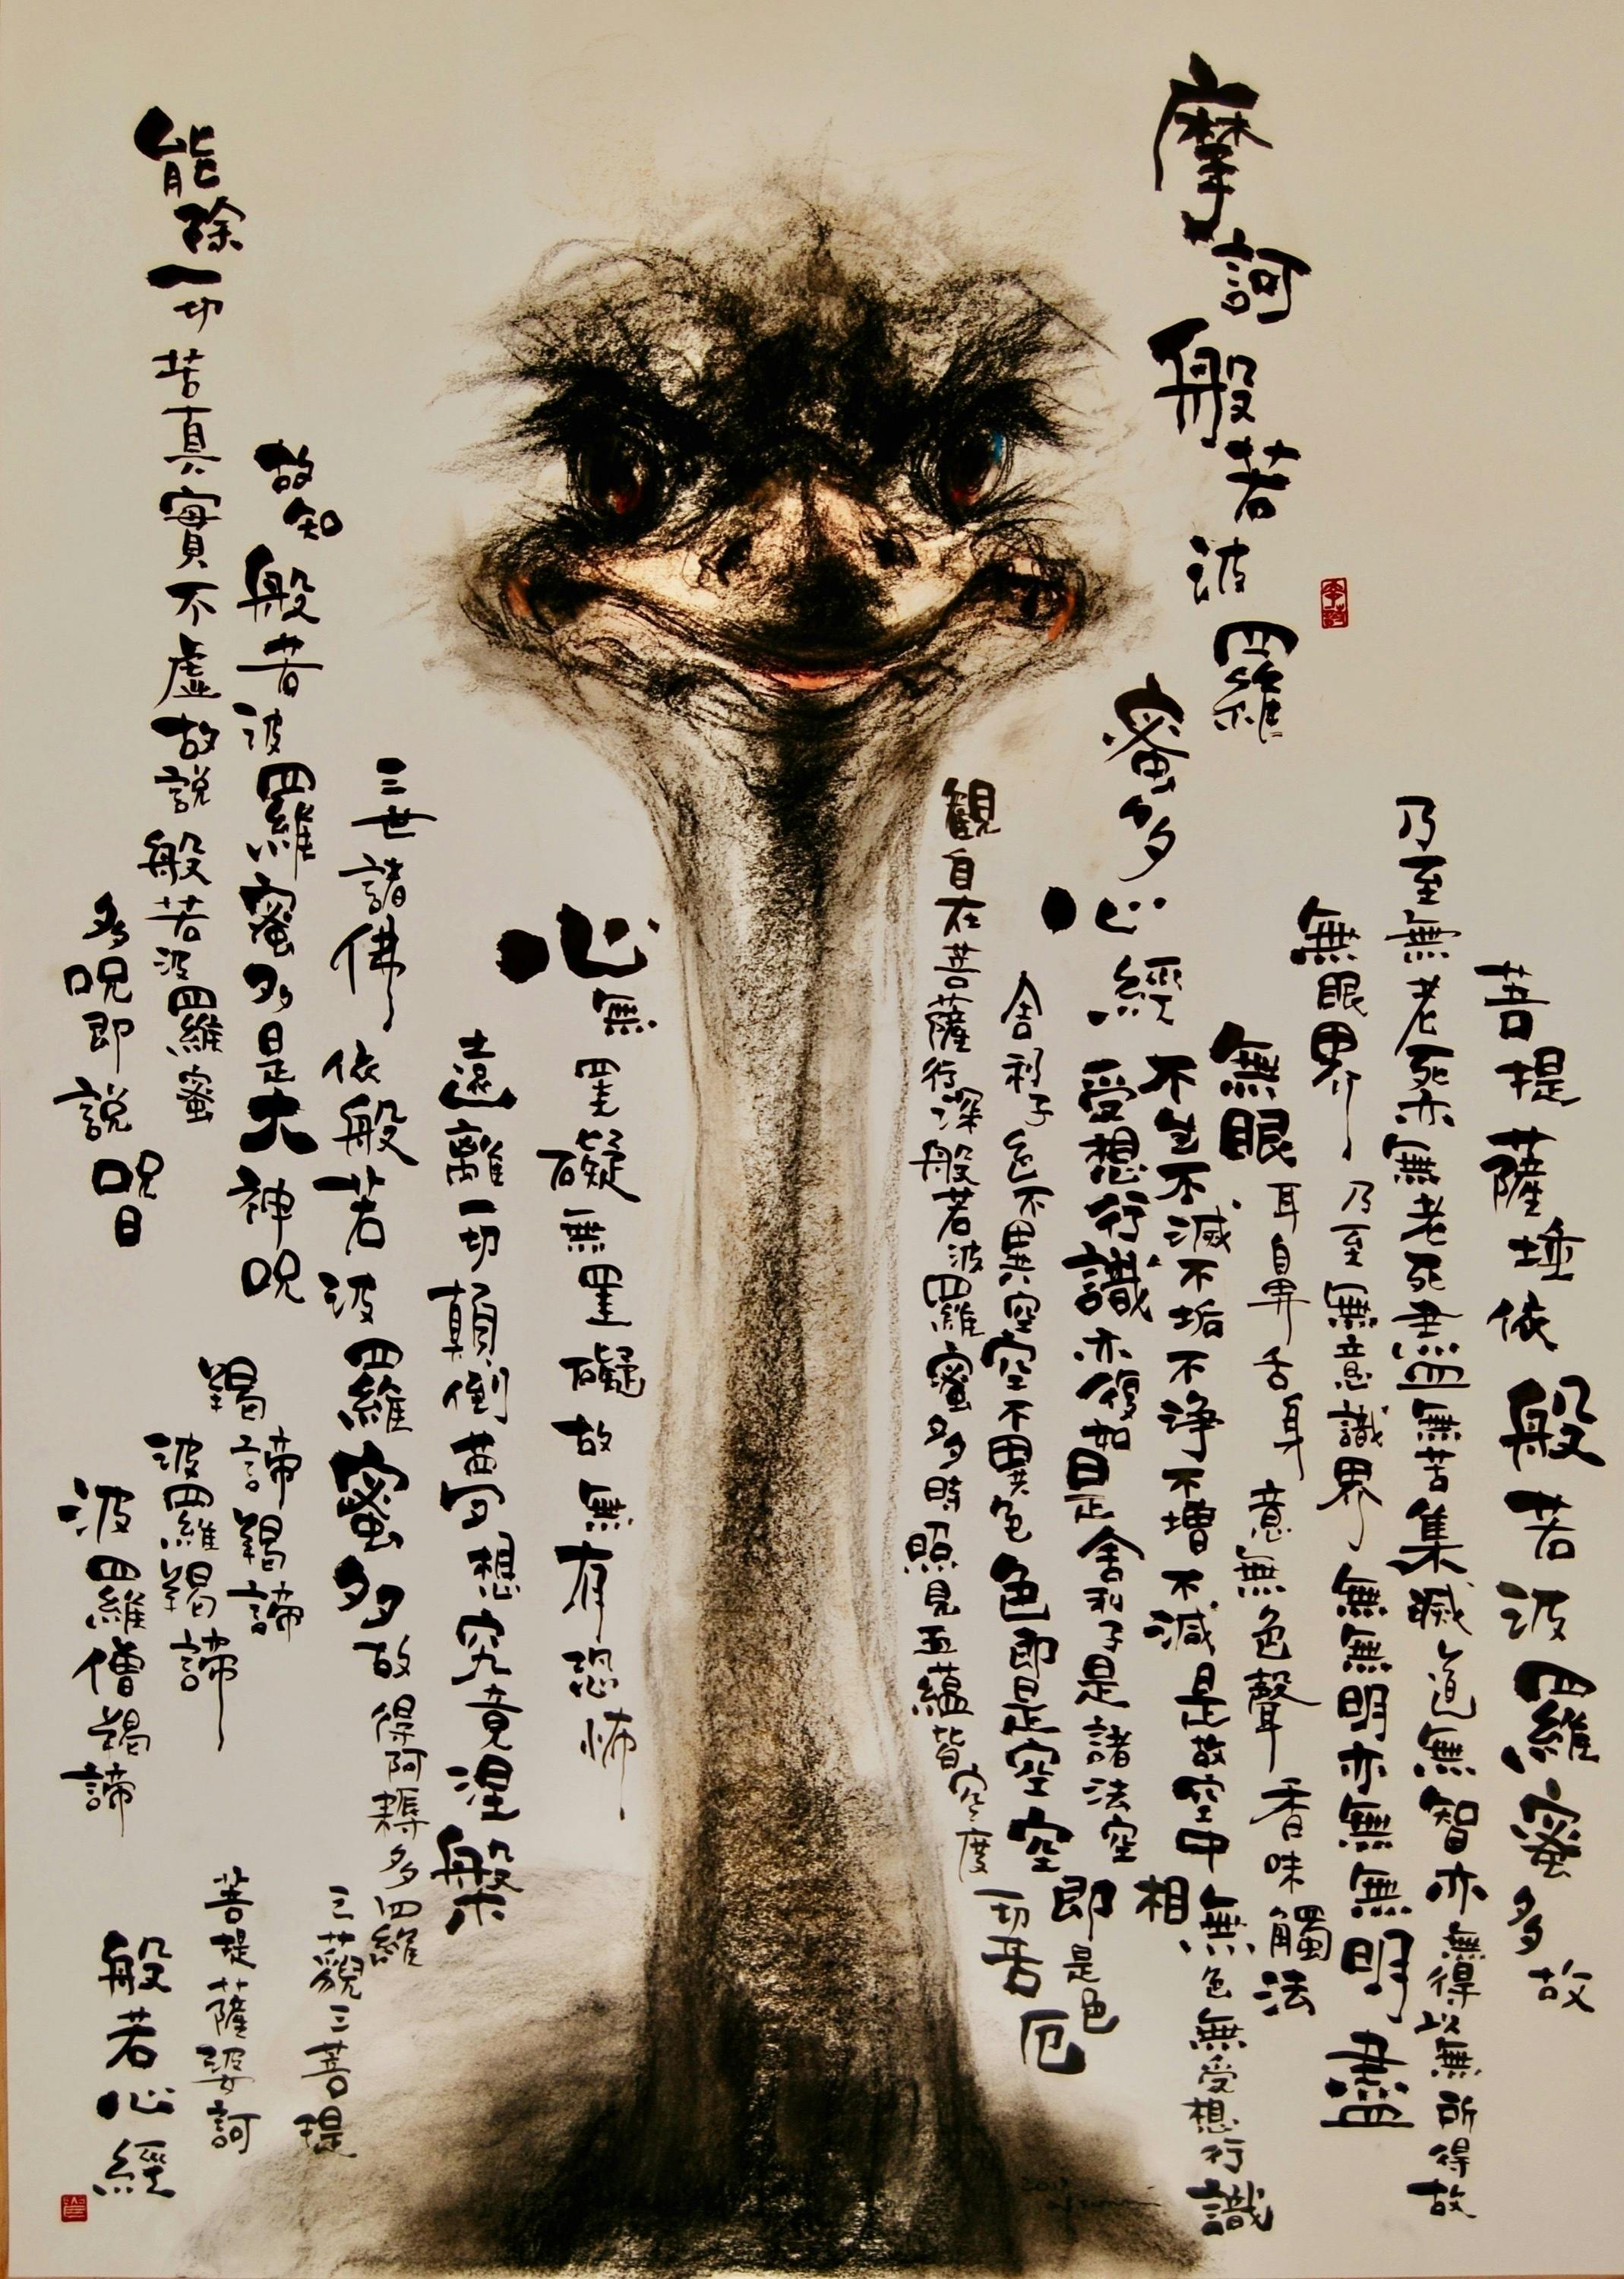 摩訶般若波羅蜜多心經
觀自在菩薩行深般若波羅蜜多時照見五蘊皆空度
一切苦厄
舍利子色不異空空不異色色即是空空
即是色
受想行識亦復如是舍利子是諸法空
相
不生不滅不垢不淨不增不減是故空中
無色無受想行識
無眼耳鼻舌身意無色聲香味觸法
無眼界乃至無意識界無無明亦無無明盡
乃至無老死亦無老死盡無苦集滅道無智亦無得以無所得故
菩提薩埵依般若波羅蜜多故
心無罣礙無罣礙故無有恐怖
遠離一切顛倒夢想究竟涅槃
三世諸佛依般若波羅蜜多故得阿耨多羅
三藐三菩提
故知般若波羅蜜多是大神呪
能除一切苦真實不虛故說般若波羅蜜
多呪即說呪曰
羯諦羯諦
波羅羯諦
波羅僧羯諦
菩提薩婆訶
般若心經